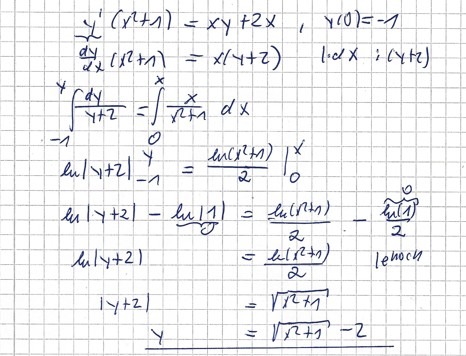 y' (x²+1) = xy + 2x , y(0) = -1
dy/dx (x²+1) = x(y+2) |·dx :(y+2)
∫_{-1}^{y} dy/(y+2) = ∫_{0}^{x} x/(x²+1) dx
ln|y+2| |_{-1}^{y} = ln(x²+1)/2 |_{0}^{x}
ln|y+2| - ln|1| = ln(x²+1)/2 - ln(1)/2
0 0
ln|y+2| = ln(x²+1)/2 | e hoch
|y+2| = √(x²+1)
y = √(x²+1) - 2